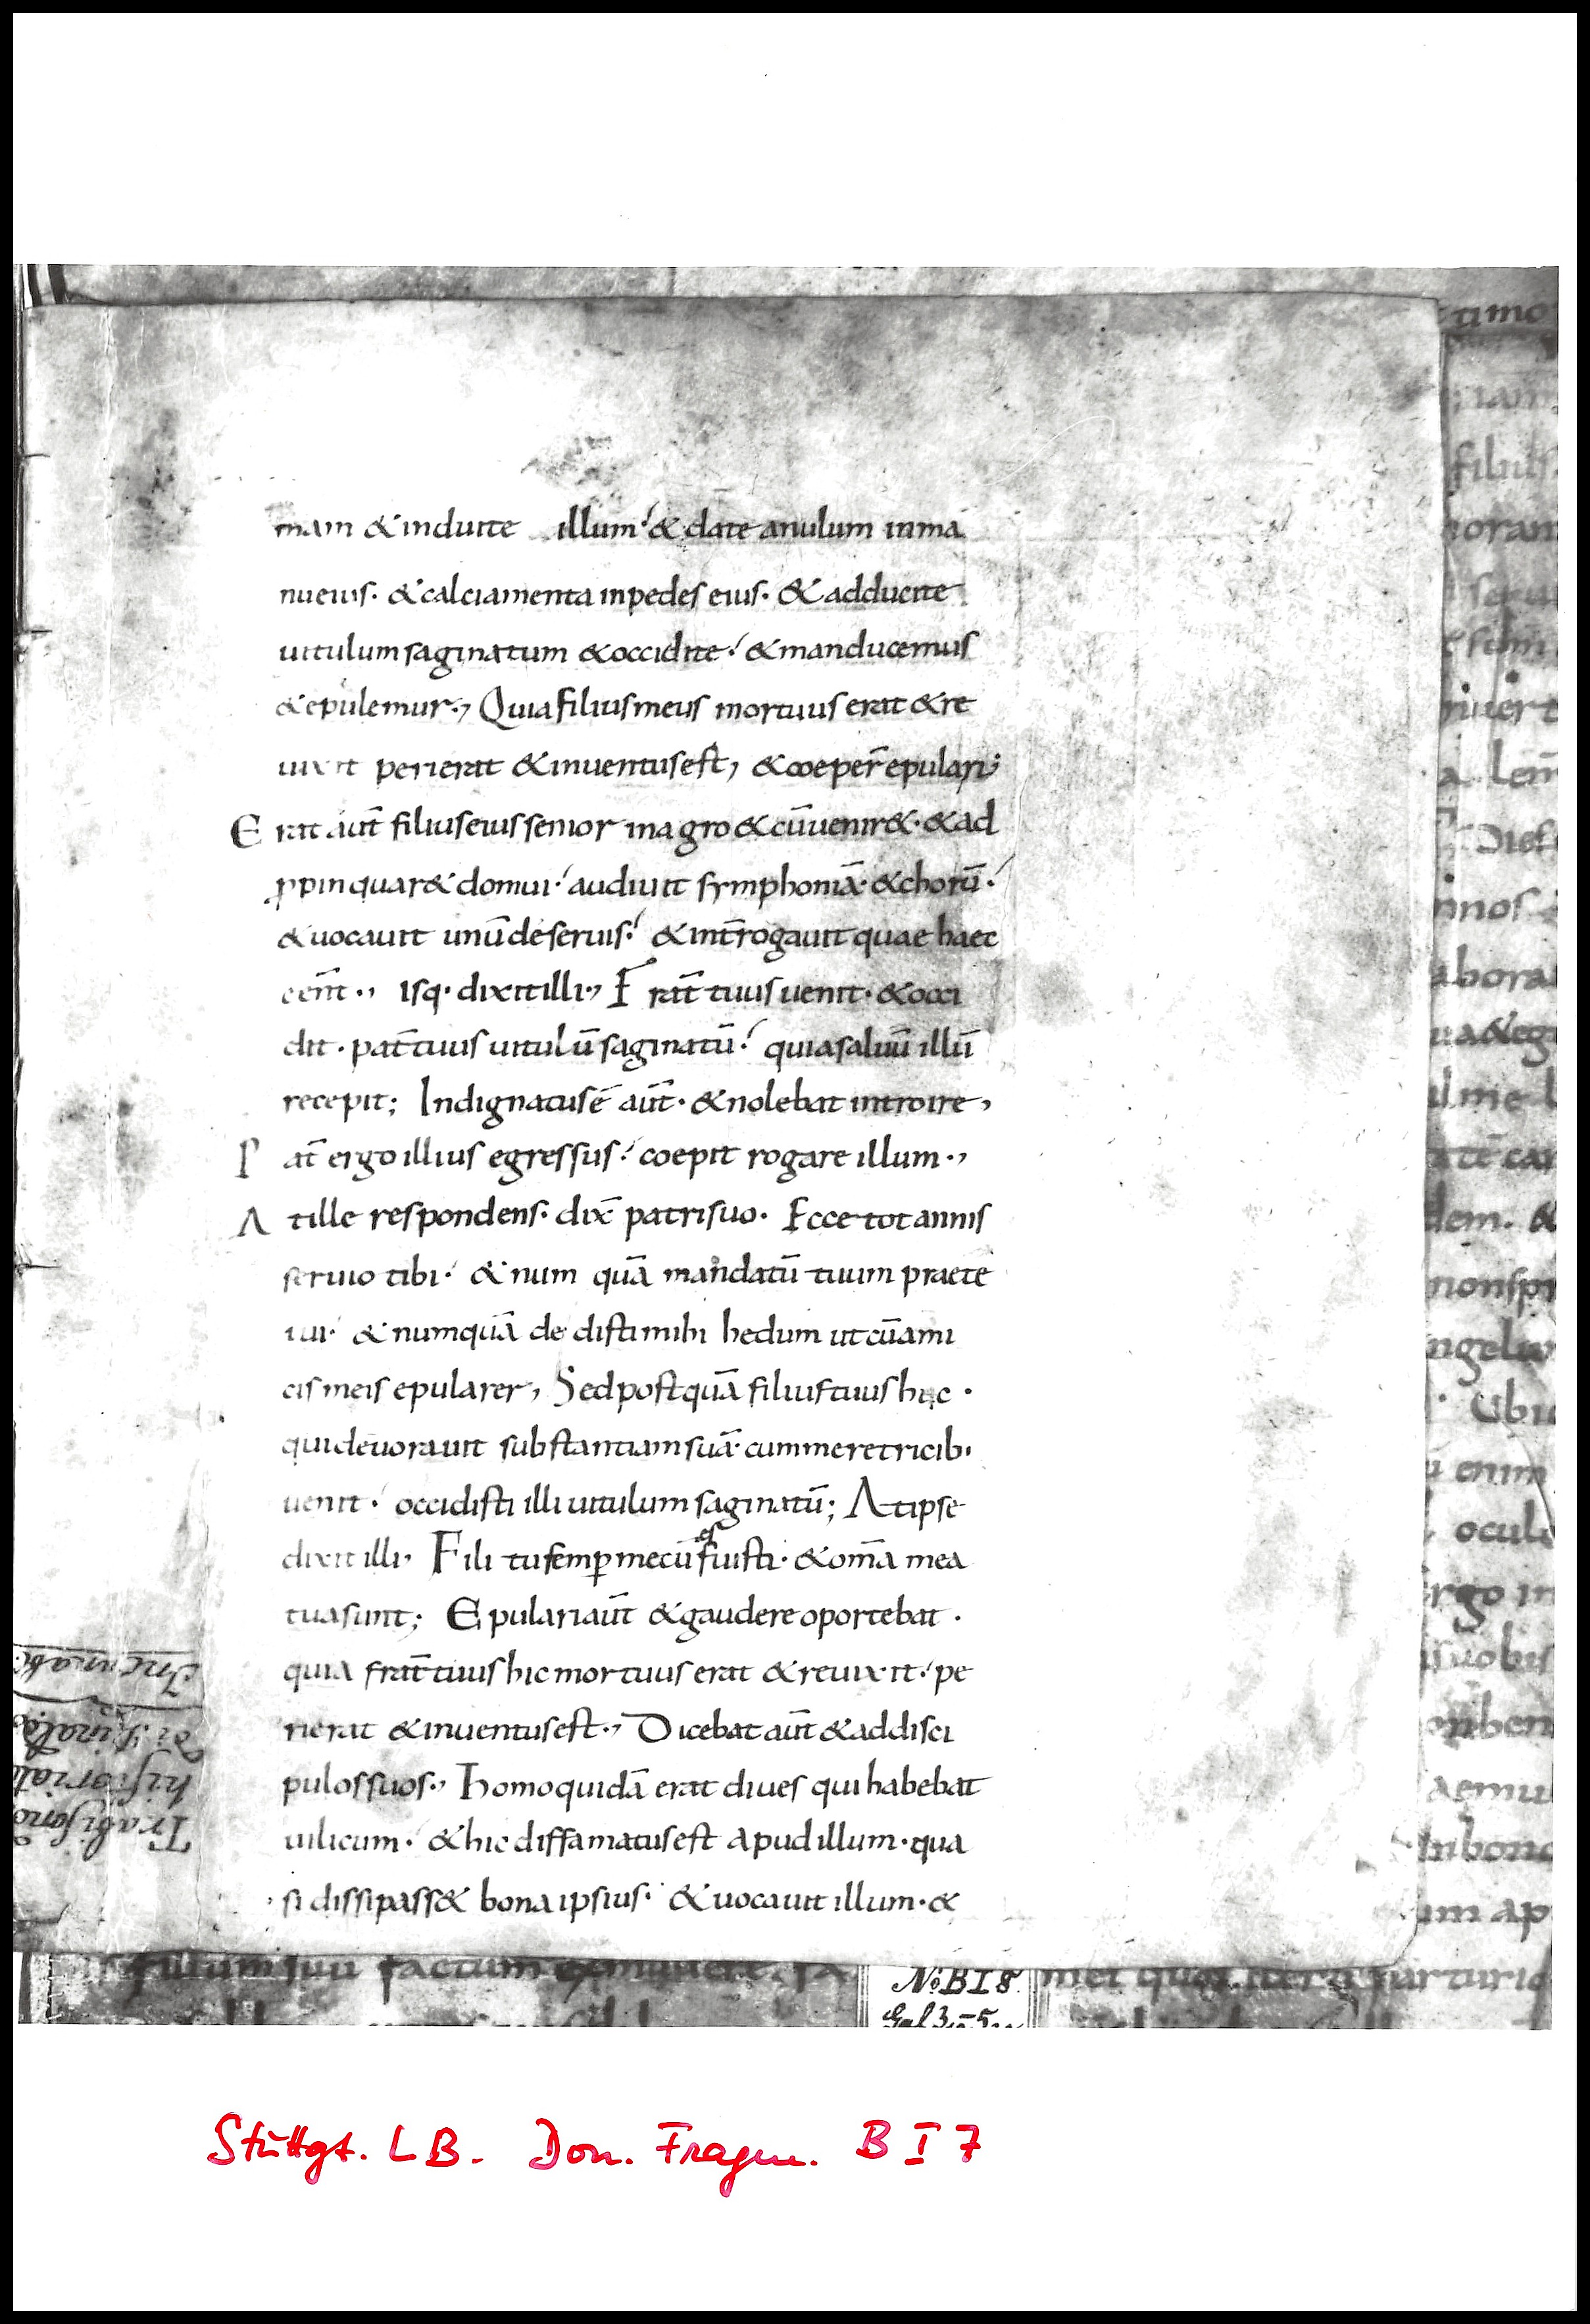 mam & induite illum & date anulum inma
nueius · & calciamenta inpedes eius · & adducite
uitulum saginatum & occidite & manducemus
& epulemur ·, Quia filius meus mortuus erat & re
uixit perierat & inuentus est, & coeper̄ epulari;
Erat aut̄ filius eius senior inagro & cū ueniret · & ad
ppinquar& domui · audiuit symphoniā · & chorū ·
& uocauit unū deseruis · & int̄rogauit quae haec
eēnt ·, isq· dixit illi ·, Frat̄ tuus uenit · & occi
dit · pat̄ tuus uitulū saginatū · quia saluū illū
recepit; Indignatus ē aut̄ · & nolebat introire,
Pat̄ ergo illius egressus · coepit rogare illum ·,
At ille respondens · dix̄ patri suo · Ecce tot annis
seruio tibi · & num quā mandatū tuum praete
riui · & numquā dedisti mihi hedum ut cū ami
cis meis epularer, Sed postquā filius tuus hic ·
qui deuorauit substantiam suā · cum meretricib·
uenit · occidisti illi uitulum saginatū; At ipse
dixit illi · Fili tu semp mecū es fuisti · & om̄a mea
tua sunt; Epulari aut̄ & gaudere oportebat ·
quia frat̄ tuus hic mortuus erat & reuixit · pe
rierat & inuentus est ·, Dicebat aut̄ & ad disci
pulos suos ·, Homo quidā erat diues qui habebat
uilicum · & hic diffamatus est apud illum · qua
si dissipass& bona ipsius · & uocauit illum · &
timo
filius
nonspi
Ubi
enim
ocul
ergo in
uobis
aemu
inbono
um ap
factum
No B I 8.
Stuttgt. LB. Don. Fragm. B I 7